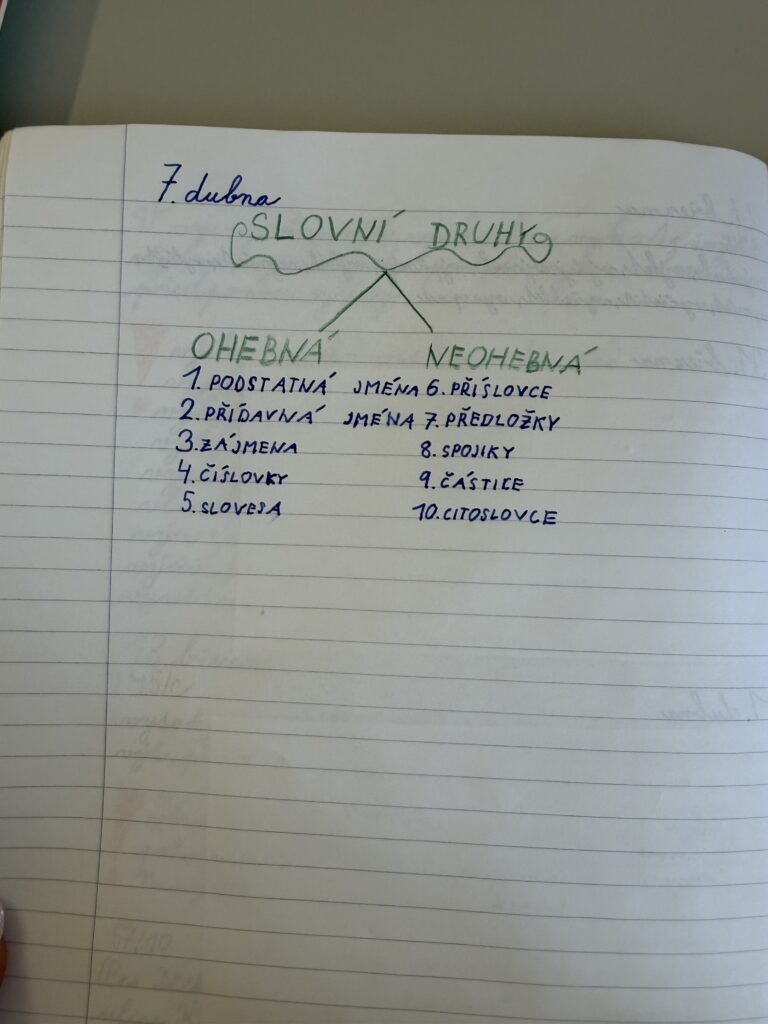 7. dubna
SLOVNÍ DRUHY
OHEBNÁ NEOHEBNÁ
1. PODSTATNÁ JMÉNA 6. PŘÍSLOVCE
2. PŘÍDAVNÁ JMÉNA 7. PŘEDLOŽKY
3. ZÁJMENA 8. SPOJKY
4. ČÍSLOVKY 9. ČÁSTICE
5. SLOVESA 10. CITOSLOVCE